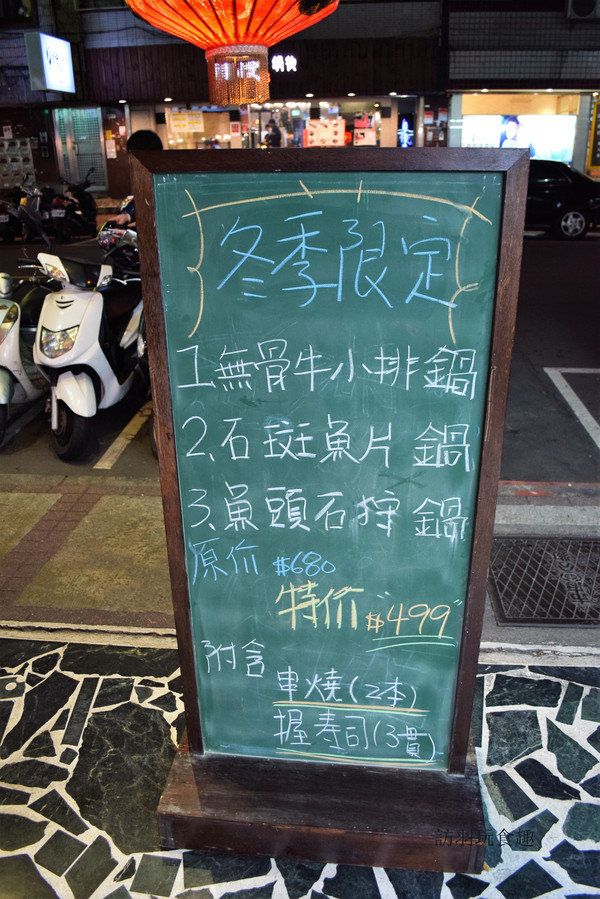 冬季限定
1.無骨牛小排鍋
2.石斑魚片鍋
3.魚頭石狩鍋
原价 $680
特価 "$499"
附含
串燒(2本)
握寿司(3貫)
訪羽玩食趣